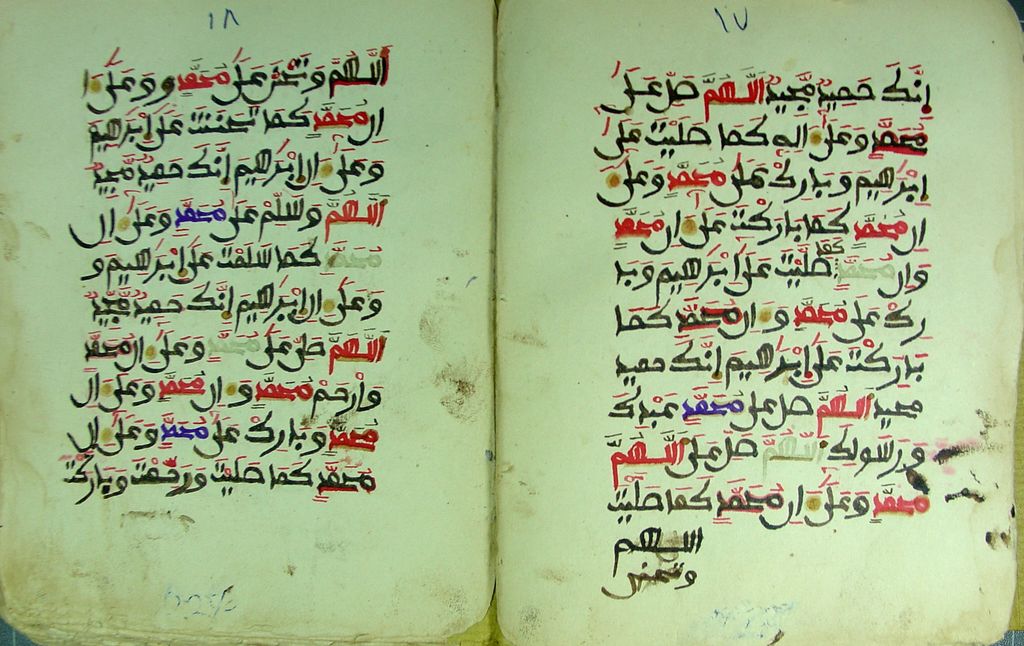 ١٧
إنك حميد مجيد اللهم صل على
محمد وعلى اله كما صليت على
إبرهيم وبارك على محمد وعلى
ال محمد كما باركت على ال محمد
وال محمد كما صليت على إبرهيم وبا
رك على محمد و ال محمد كما
باركت على إبرهيم إنك حميد
مجيد اللهم صل على محمد عبدك
ورسولك اللهم صل على اللهم
محمد وعلى ال محمد كما صليت
اللهم
وتحنن
١٨
اللهم وتحنن على محمد وعلى ا
ال محمد كما تحننت على إبرهيم
وعلى ال إبرهيم إنك حميد مجيد
اللهم وسلم على محمد وعلى ال
محمد كما سلمت على إبرهيم و
وعلى ال إبرهيم إنك حميد مجيد
اللهم صل على محمد وعلى ال محمد
وارحم محمد و ال محمد وعلى ال
محمد وبارك على محمد وعلى ال
محمد كما صليت ورحمت وباركت